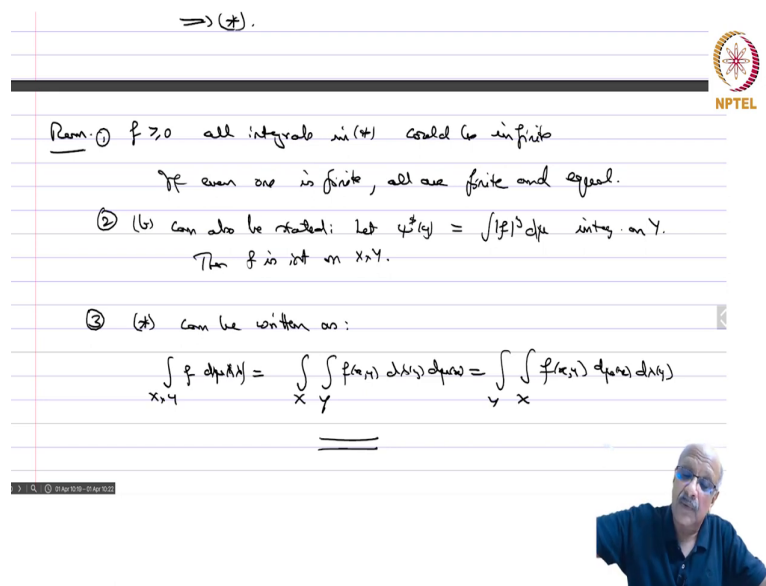 ⇒ (*).
NPTEL
Rem. ① f ≥ 0 all integrals in (*) could be infinite
If even one is finite, all are finite and equal.
② (b) can also be stated: Let ψ*(y) = ∫|f|^y dμ integ. on Y.
Then f is int on X×Y.
③ (*) can be written as:
∫_{X×Y} f d(μ×λ) = ∫_X ∫_Y f(x,y) dλ(y) dμ(x) = ∫_Y ∫_X f(x,y) dμ(x) dλ(y)
01 Apr 10:18 - 01 Apr 10:22